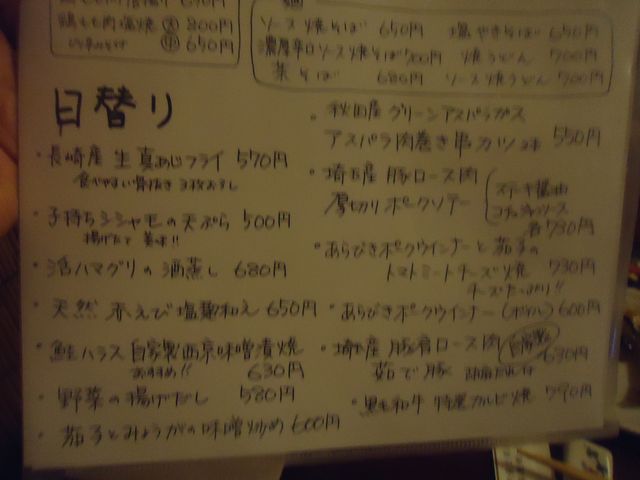 鶏もも肉塩焼 大 800円
中 650円
麺
ソース焼そば 650円
塩やきそば 650円
濃厚辛口ソース焼そば 700円
焼うどん 700円
茶そば 680円
ソース焼うどん 700円
日替り
・長崎産 生真あじフライ 570円
食べやすい骨抜き 3枚おろし
・子持ちシシャモの天ぷら 500円
揚げたて 美味!!
・活ハマグリの酒蒸し 680円
・天然 赤えび塩麹和え 650円
・鮭ハラス自家製西京味噌漬焼
おすすめ!! 630円
・野菜の揚げだし 580円
・茄子とみょうがの味噌炒め 600円
・秋田産 グリーンアスパラガス
アスパラ肉巻き串カツ 2本 550円
・埼玉産 豚ロース肉
厚切りポークソテー
ステーキ醤油
ソース
各 730円
・あらびきポークウインナーと茄子の
トマトミートチーズ焼 730円
チーズたっぷり!!
・あらびきポークウインナー (ボイル) 600円
・埼玉産 豚肩ロース肉 自家製
茹で豚 630円
・黒毛和牛 特選カルビ焼 790円